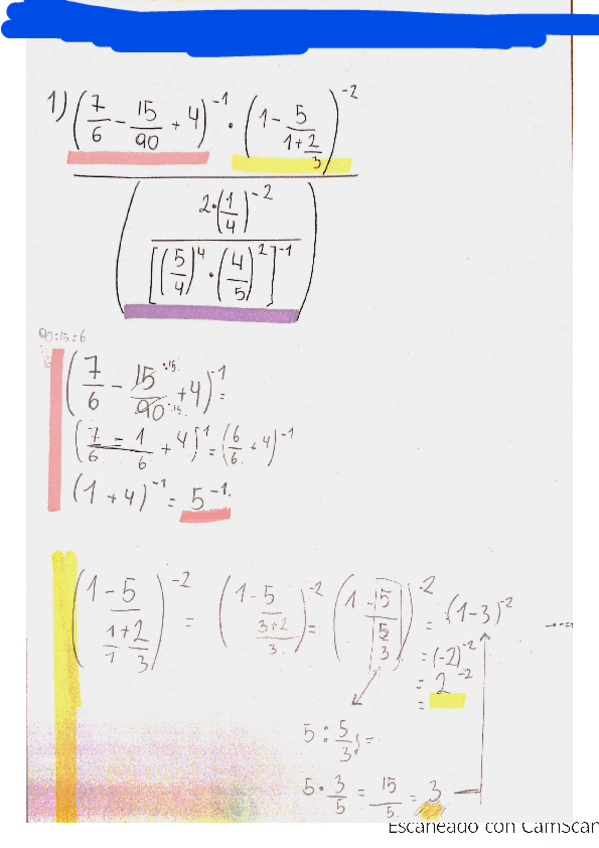 1) (7/6 - 15/90 + 4)^-1 · (1 - 5/(1+2/3))^-2
(2·(1/4)^-2 / [(5/4)^4 · (4/5)^2]^-1)
90:15=6
(7/6 - 15:15/90:15 + 4)^-1 =
(7/6 - 1/6 + 4)^-1 = (6/6 + 4)^-1
(1+4)^-1 = 5^-1.
(1-5/(1/1+2/3))^-2 = (1-5/((3+2)/3))^-2 = (1-5/(5/3))^-2 = (1-3)^-2
= (-2)^-2
= 2^-2
=
5 : 5/3 =
5 · 3/5 = 15/5 = 3
Escaneado con CamScan